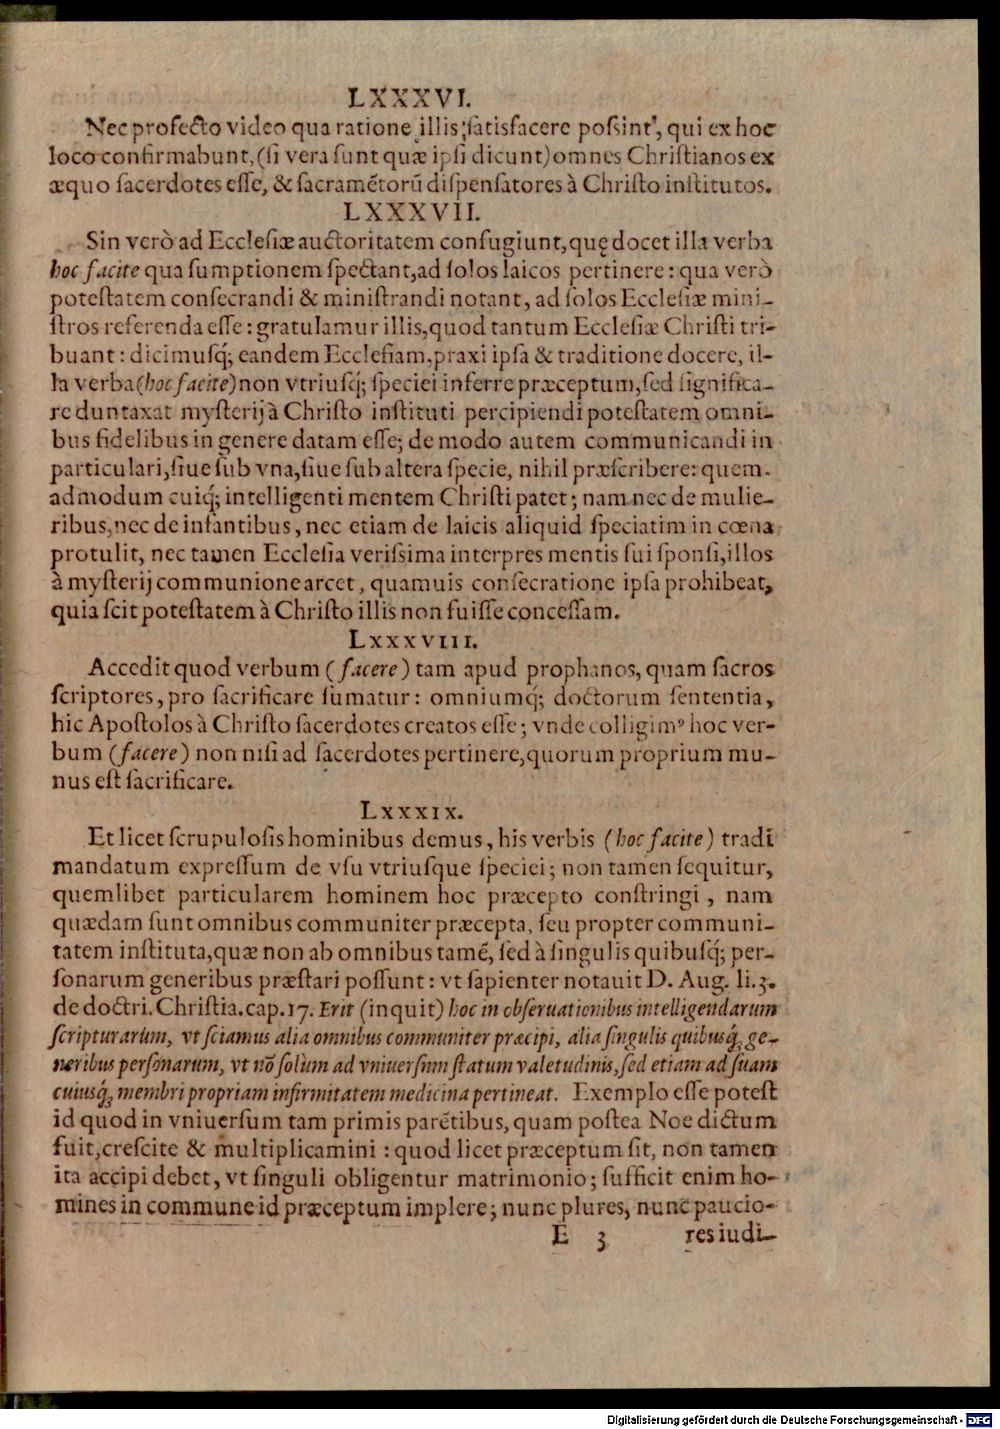 LXXXVI.
Nec profecto video qua ratione illis ſatisfacere poſsint, qui ex hoc
loco confirmabunt, (ſi vera ſunt quæ ipſi dicunt) omnes Chriſtianos ex
æquo ſacerdotes eſſe, & ſacramẽtorũ diſpenſatores à Chriſto inſtitutos.
LXXXVII.
Sin verò ad Eccleſiæ auctoritatem confugiunt, quę docet illa verba
hoc facite qua ſumptionem ſpectant, ad ſolos laicos pertinere: qua verò
poteſtatem conſecrandi & miniſtrandi notant, ad ſolos Eccleſiæ mini-
ſtros referenda eſſe: gratulamur illis, quod tantum Eccleſiæ Chriſti tri-
buant: dicimuſq́; eandem Eccleſiam, praxi ipſa & traditione docere, il-
la verba (hoc facite) non vtriuſq́; ſpeciei inferre præceptum, ſed ſignifica-
re duntaxat myſterij à Chriſto inſtituti percipiendi poteſtatem omni-
bus fidelibus in genere datam eſſe; de modo autem communicandi in
particulari, ſiue ſub vna, ſiue ſub altera ſpecie, nihil præſcribere: quem-
admodum cuiq́; intelligenti mentem Chriſti patet; nam nec de mulie-
ribus, nec de infantibus, nec etiam de laicis aliquid ſpeciatim in cœna
protulit, nec tamen Eccleſia veriſsima interpres mentis ſui ſponſi, illos
à myſterij communione arcet, quamuis conſecratione ipſa prohibeat,
quia ſcit poteſtatem à Chriſto illis non fuiſſe conceſſam.
LXXXVIII.
Accedit quod verbum (facere) tam apud prophanos, quam ſacros
ſcriptores, pro ſacrificare ſumatur: omniumq́; doctorum ſententia,
hic Apoſtolos à Chriſto ſacerdotes creatos eſſe; vnde colligimꝰ hoc ver-
bum (facere) non niſi ad ſacerdotes pertinere, quorum proprium mu-
nus eſt ſacrificare.
LXXXIX.
Et licet ſcrupuloſis hominibus demus, his verbis (hoc facite) tradi
mandatum expreſſum de vſu vtriuſque ſpeciei; non tamen ſequitur,
quemlibet particularem hominem hoc præcepto conſtringi, nam
quædam ſunt omnibus communiter præcepta, ſeu propter communi-
tatem inſtituta, quæ non ab omnibus tamẽ, ſed à ſingulis quibuſq́; per-
ſonarum generibus præſtari poſſunt: vt ſapienter notauit D. Aug. li. 3.
de doctri. Chriſtia. cap. 17. Erit (inquit) hoc in obſeruationibus intelligendarum
ſcripturarum, vt ſciamus alia omnibus communiter præcipi, alia ſingulis quibuſq́; ge-
neribus perſonarum, vt nõ ſolùm ad vniuerſum ſtatum valetudinis, ſed etiam ad ſuam
cuiuſq́; membri propriam infirmitatem medicina pertineat. Exemplo eſſe poteſt
id quod in vniuerſum tam primis parẽtibus, quam poſtea Noe dictum
fuit, creſcite & multiplicamini: quod licet præceptum ſit, non tamen
ita accipi debet, vt ſinguli obligentur matrimonio; ſufficit enim ho-
mines in commune id præceptum implere; nunc plures, nunc paucio-
E 3 res iudi-
Digitalisierung gefördert durch die Deutsche Forschungsgemeinschaft - DFG